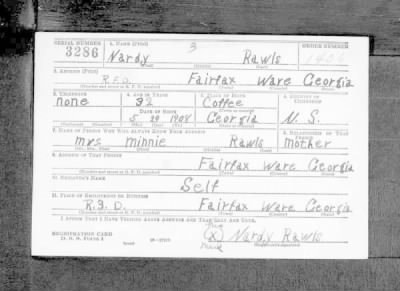 SERIAL NUMBER 1. NAME (Print) ORDER NUMBER
3286 Nardy 3 Rawls
(First) (Middle) (Last)
2. ADDRESS (Print)
R.F.D. Fairfax Ware Georgia
3. TELEPHONE 4. AGE IN YEARS 5. PLACE OF BIRTH 6. COUNTRY OF CITIZENSHIP
none 32 Coffee
DATE OF BIRTH
5 29 1908 Georgia U. S.
7. NAME OF PERSON WHO WILL ALWAYS KNOW YOUR ADDRESS 8. RELATIONSHIP OF THAT PERSON
mrs minnie Rawls mother
9. ADDRESS OF THAT PERSON
Fairfax Ware Georgia
10. EMPLOYER'S NAME
Self
11. PLACE OF EMPLOYMENT OR BUSINESS
R.F.D. Fairfax Ware Georgia
I AFFIRM THAT I HAVE VERIFIED ABOVE ANSWERS AND THAT THEY ARE TRUE.
REGISTRATION CARD
D. S. S. Form 1
his
(x) Nardy Rawls
mark